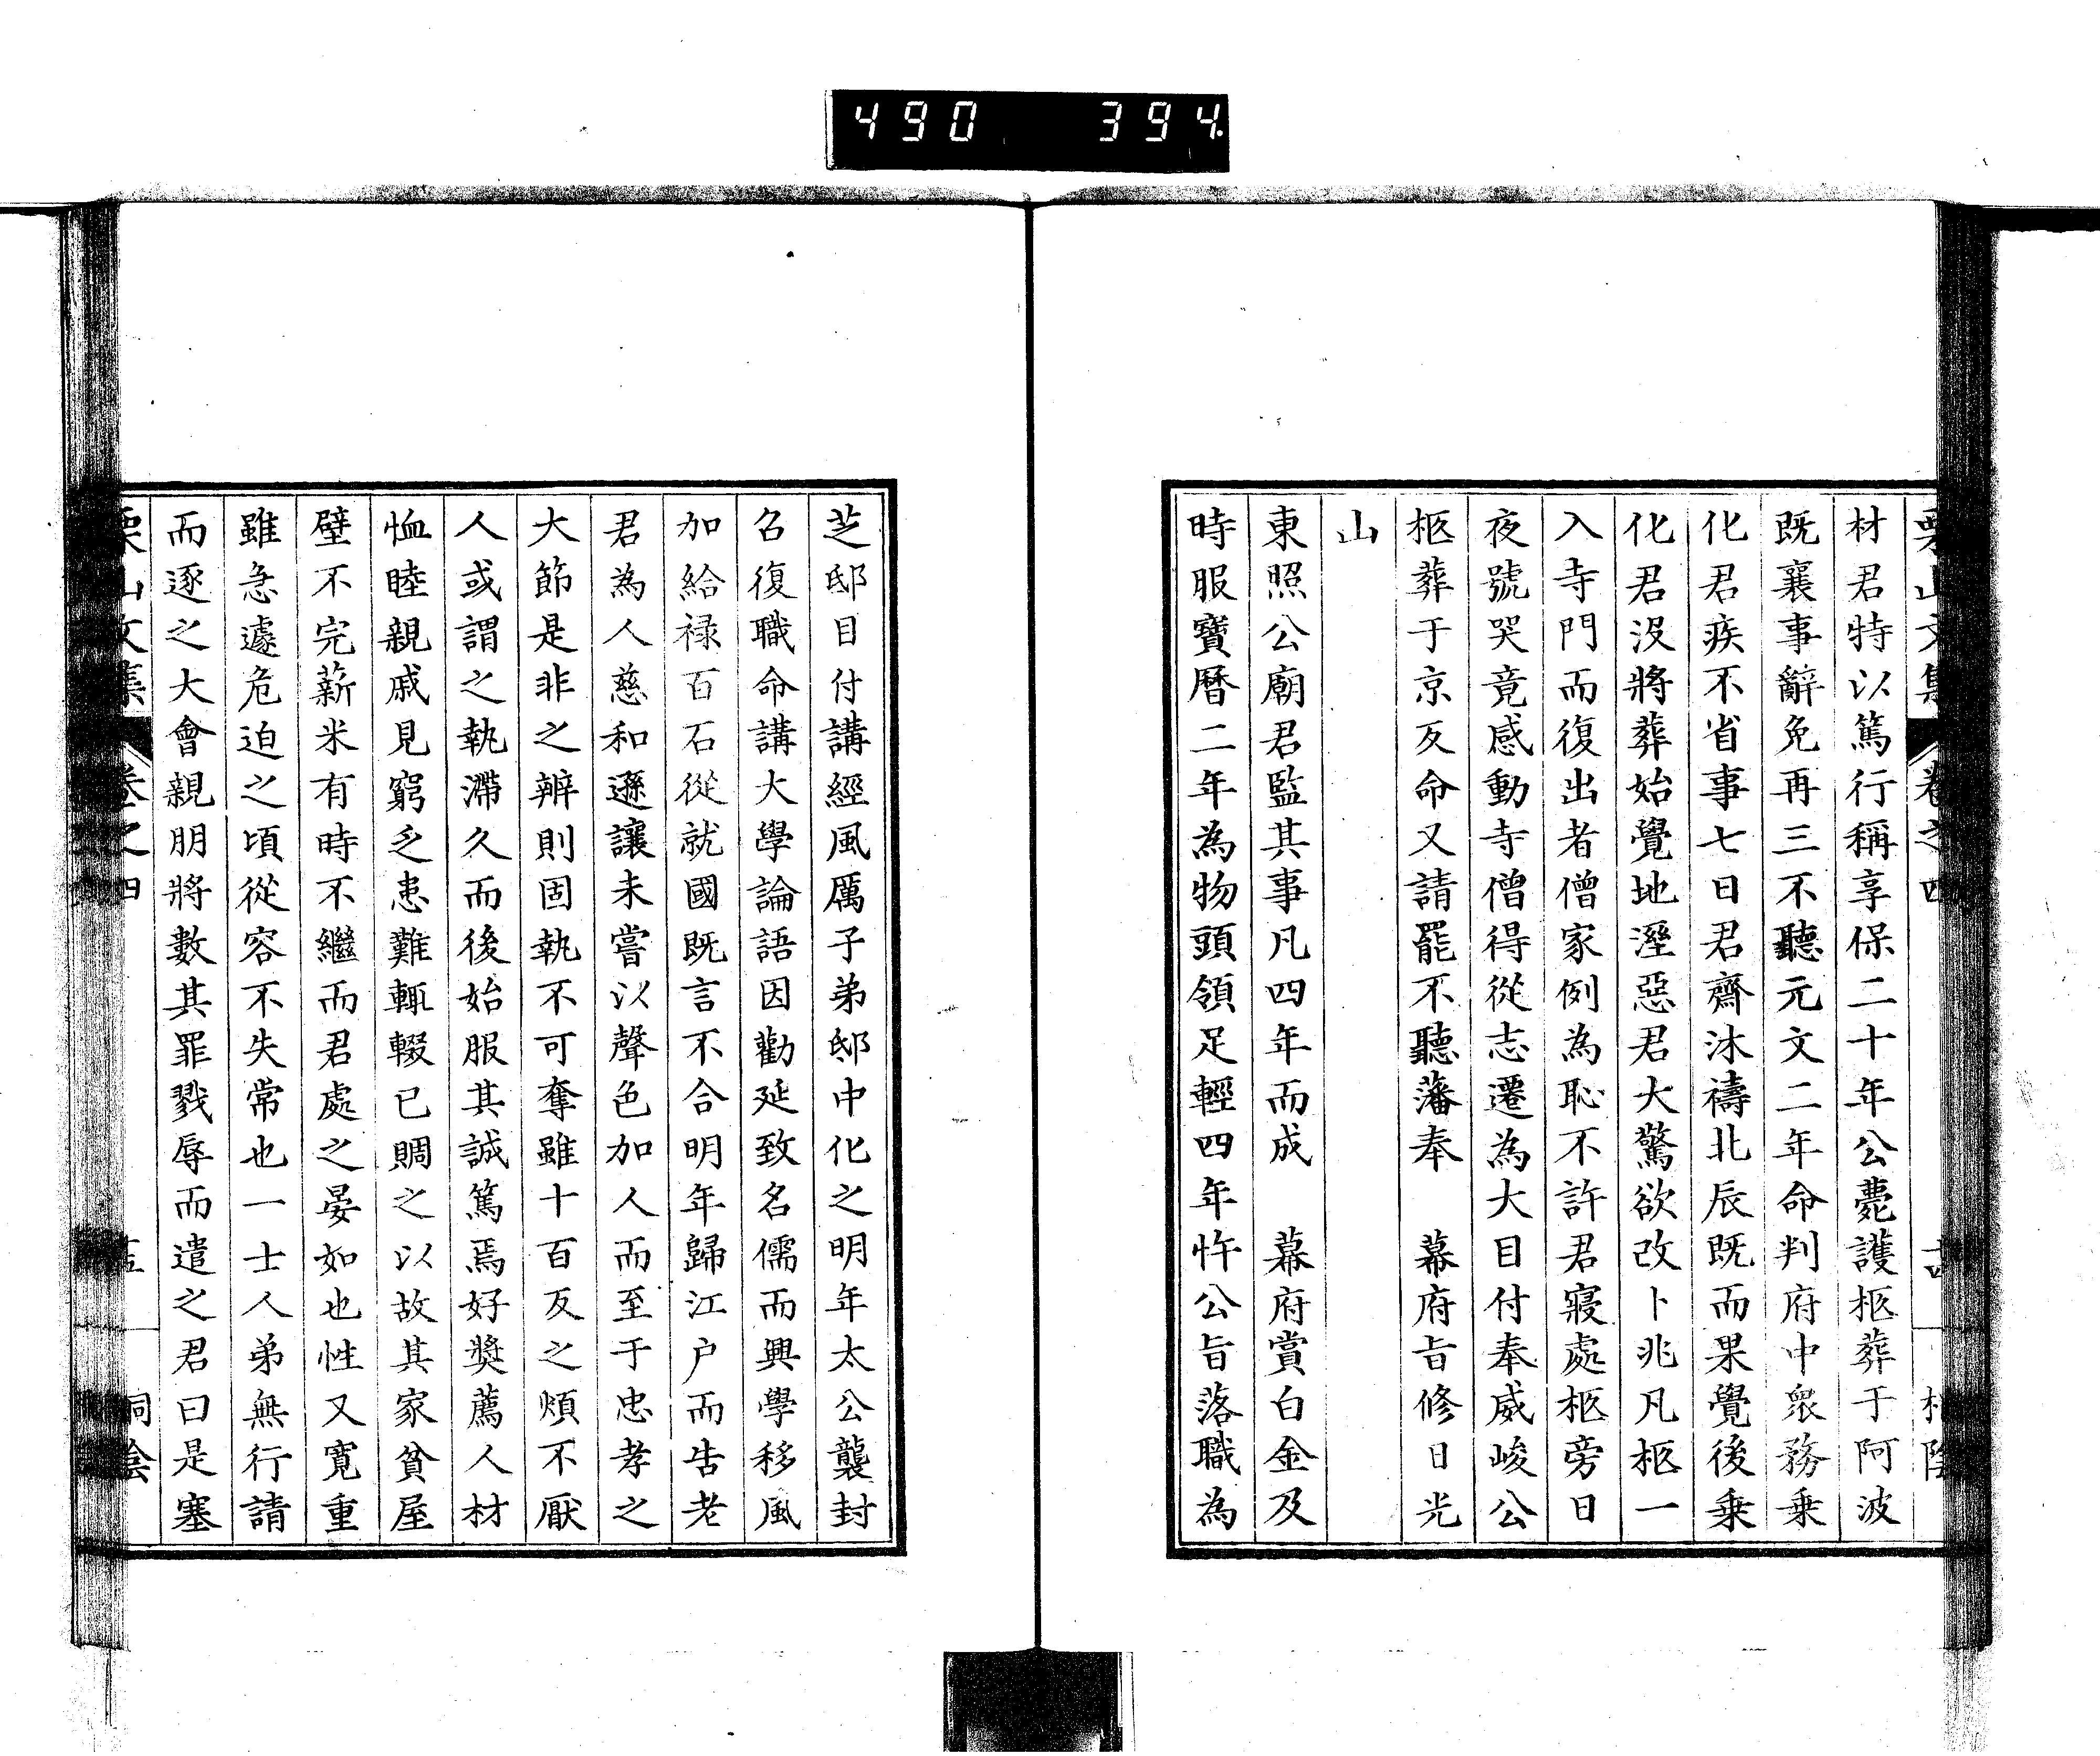 490 394
栗山文集 卷之四
材君特以篤行稱享保二十年公薨護柩葬于阿波
既襄事辭免再三不聽元文二年命判府中衆務乗
化君疾不省事七日君齋沐禱北辰既而果覺後乗
化君沒將葬始覺地溼惡君大驚欲改卜兆凡柩一
入寺門而復出者僧家例為恥不許君寢處柩旁日
夜號哭竟感動寺僧得從志遷為大目付奉威峻公
柩葬于京反命又請罷不聽藩奉　幕府旨修日光
山
東照公廟君監其事凡四年而成　幕府賞白金及
時服寶曆二年為物頭領足輕四年忤公旨落職為
芝邸目付講經風厲子弟邸中化之明年太公襲封
召復職命講大學論語因勸延致名儒而興學移風
加給禄百石從就國既言不合明年歸江户而告老
君為人慈和遜讓未嘗以聲色加人而至于忠孝之
大節是非之辨則固執不可奪雖十百反之煩不厭
人或謂之執滯久而後始服其誠篤焉好獎薦人材
恤睦親戚見窮乏患難輒輟已賙之以故其家貧屋
壁不完薪米有時不繼而君處之晏如也性又寬重
雖急遽危迫之頃從容不失常也一士人弟無行請
而逐之大會親朋將數其罪戮辱而遣之君曰是塞
栗山文集 卷之四